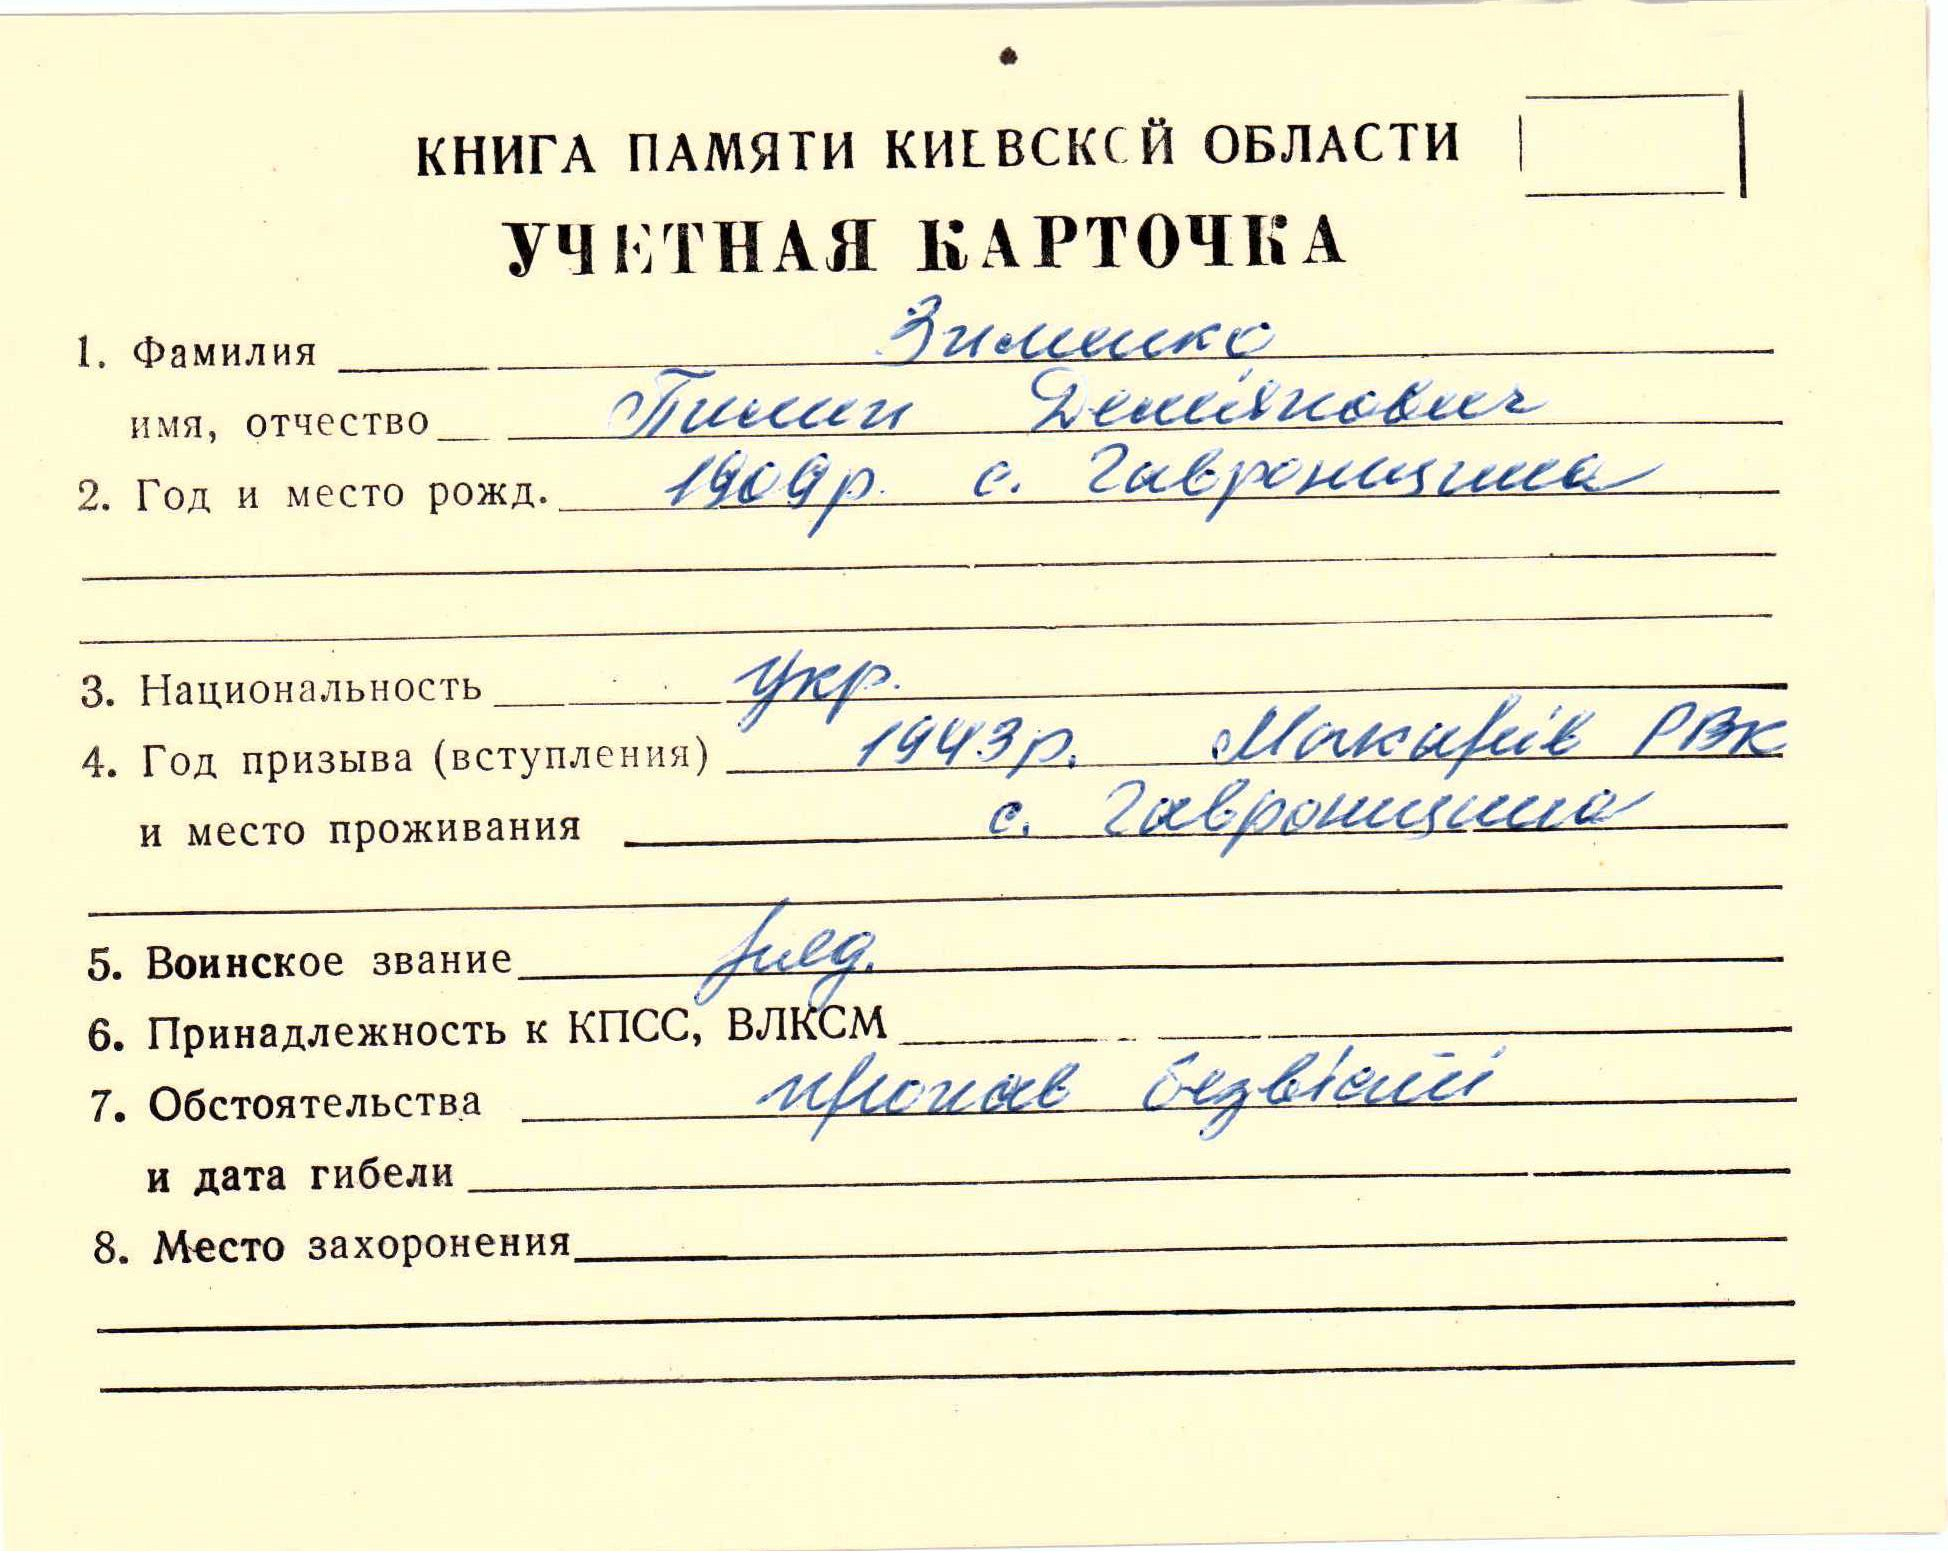 КНИГА ПАМЯТИ КИЕВСКОЙ ОБЛАСТИ
УЧЕТНАЯ КАРТОЧКА
1. Фамилия Зименко
имя, отчество Пимен Дем'янович
2. Год и место рожд. 1909р. с. Гавронщина
3. Национальность Укр.
4. Год призыва (вступления) 1943р. Макарів РВК
и место проживания с. Гавронщина
5. Воинское звание ряд.
6. Принадлежность к КПСС, ВЛКСМ
7. Обстоятельства пропав безвісти
и дата гибели
8. Место захоронения